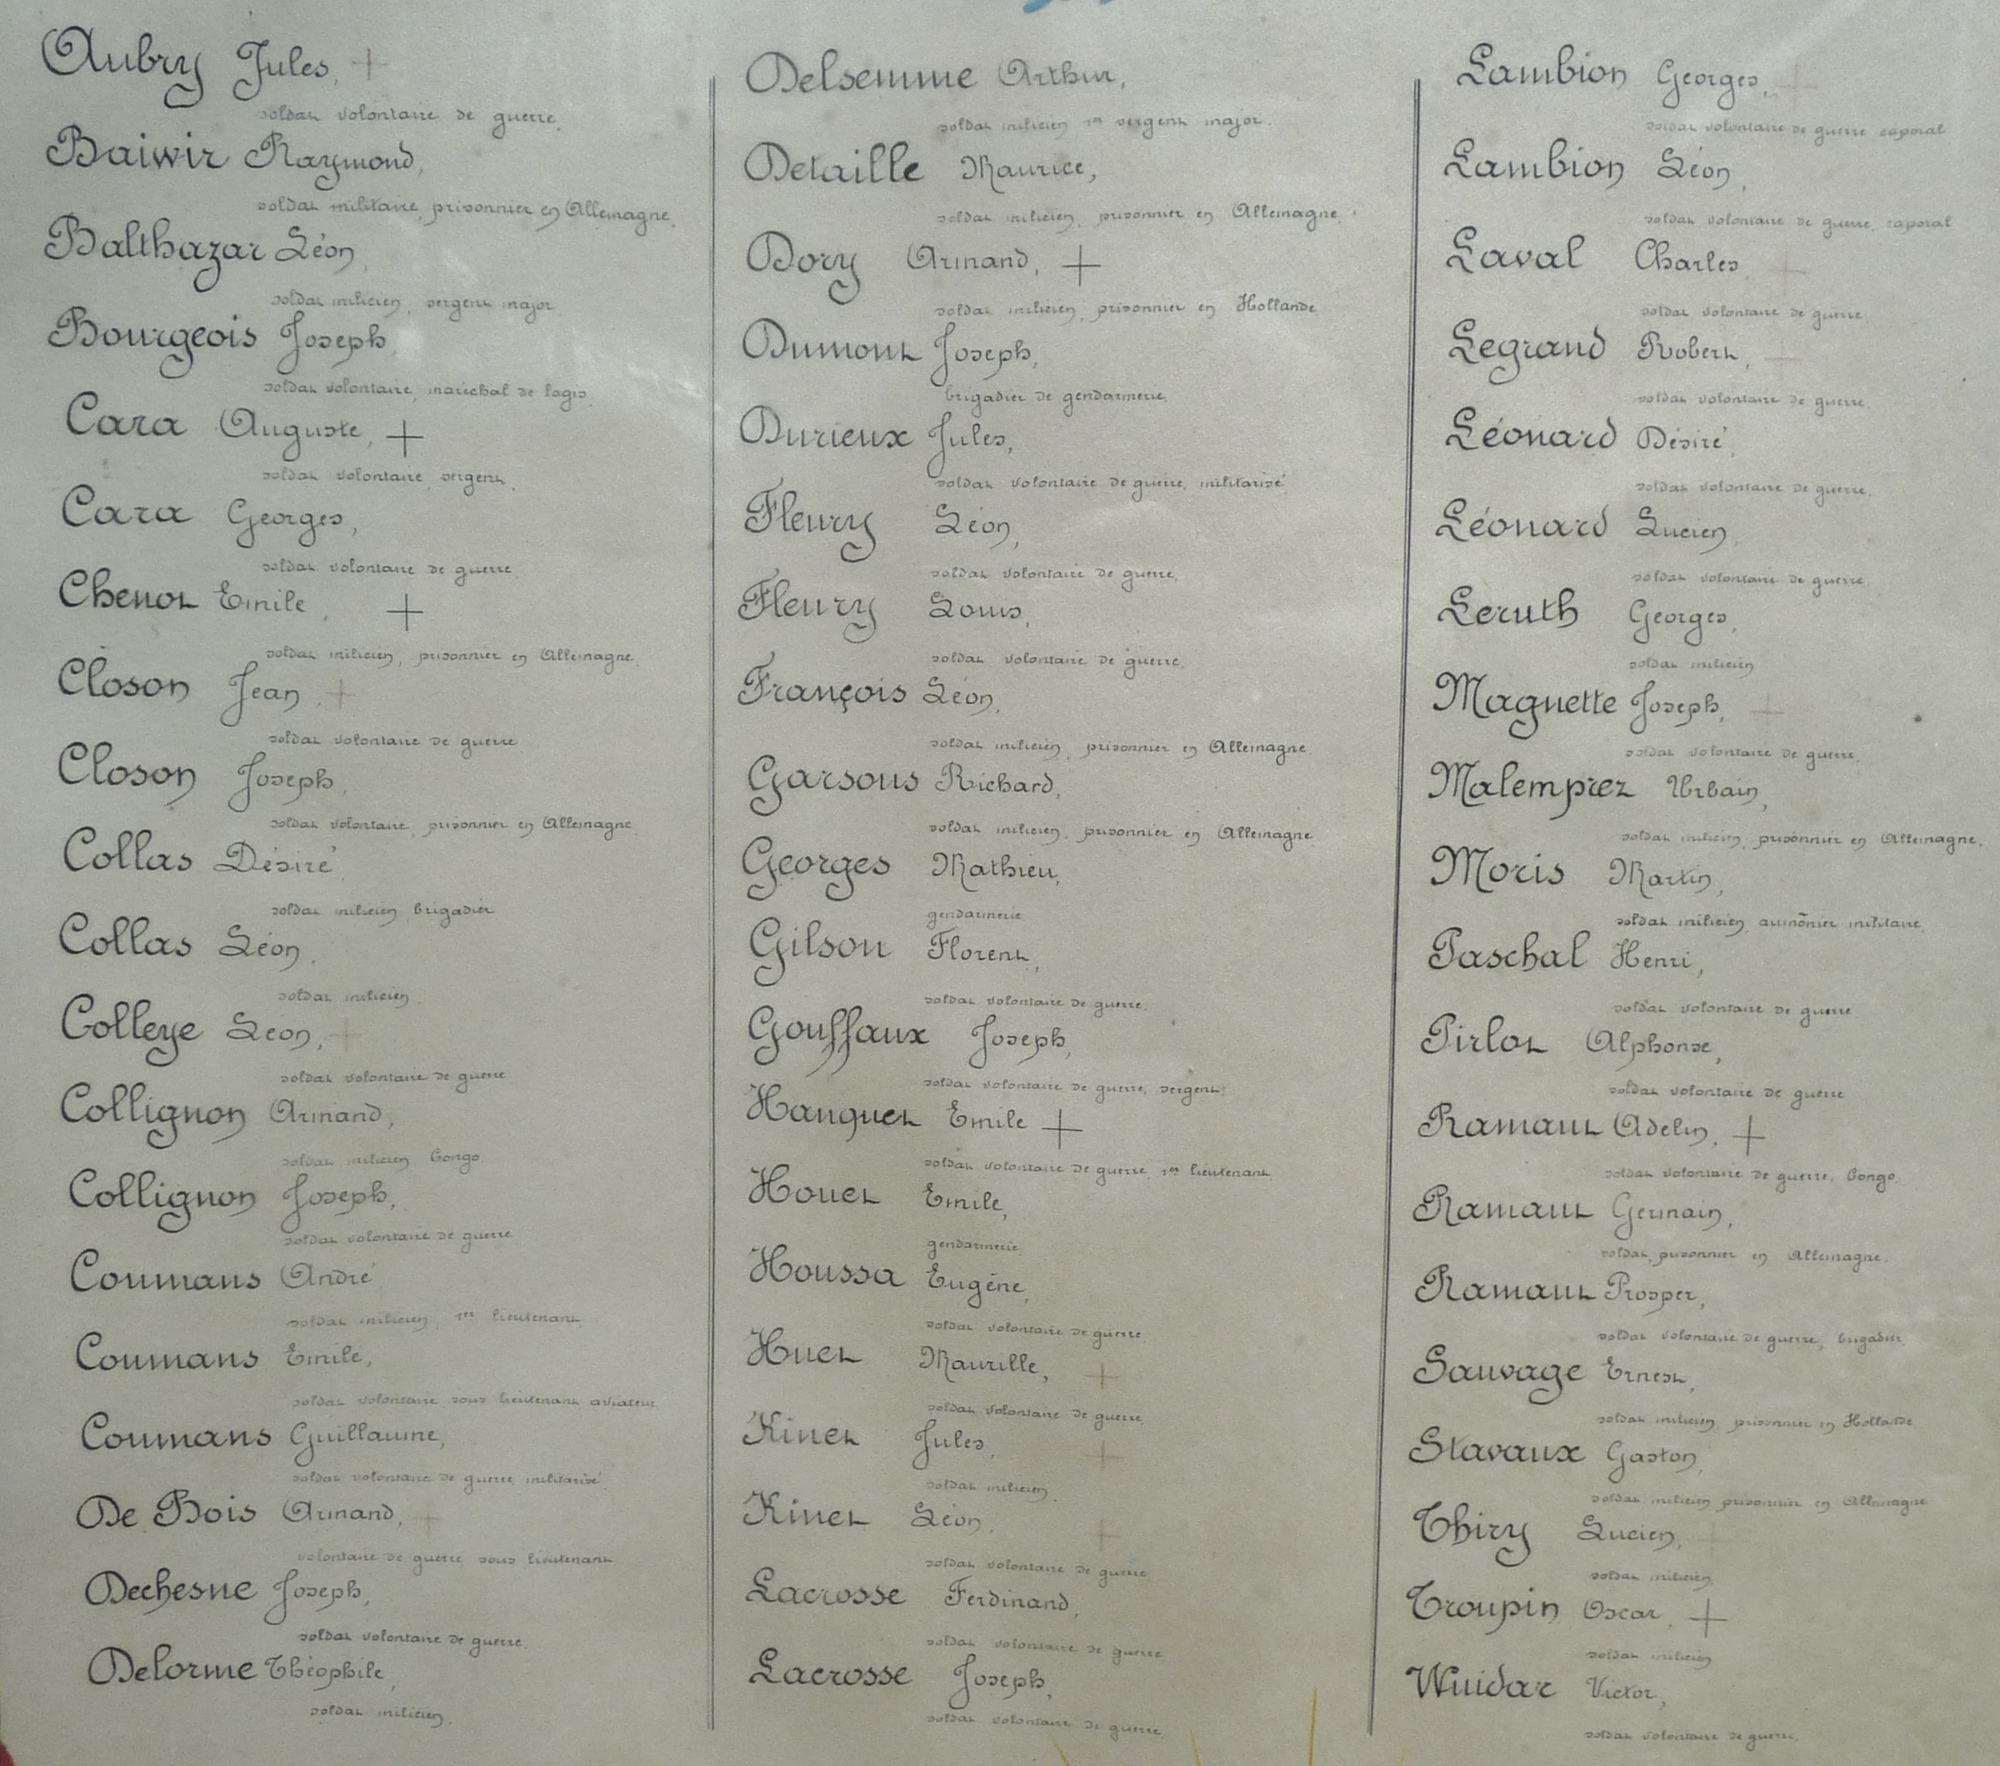 Aubry Jules, +
soldat volontaire de guerre.
Baiwir Raymond,
soldat militaire, prisonnier en Allemagne.
Balthazar Léon,
soldat milicien, sergent major
Bourgeois Joseph,
soldat volontaire, maréchal de logis
Cara Auguste, +
soldat volontaire, sergent.
Cara Georges,
soldat volontaire de guerre.
Chenot Emile, +
soldat milicien, prisonnier en Allemagne.
Closon Jean, +
soldat volontaire de guerre
Closon Joseph,
soldat volontaire, prisonnier en Allemagne
Collas Désiré,
soldat milicien, brigadier
Collas Léon,
soldat milicien.
Colleye Léon, +
soldat volontaire de guerre
Collignon Armand,
soldat milicien Congo
Collignon Joseph,
soldat volontaire de guerre
Coumans André
soldat milicien, 1er lieutenant
Coumans Emile,
soldat volontaire sous lieutenant aviateur
Coumans Guillaume,
soldat volontaire de guerre, militarisé
De Bois Armand, +
volontaire de guerre sous lieutenant
Dechesne Joseph,
soldat volontaire de guerre.
Delorme Théophile,
soldat milicien.
Delsemme Arthur,
soldat milicien 1er sergent major.
Detaille Maurice,
soldat milicien, prisonnier en Allemagne.
Dory Armand, +
soldat milicien, prisonnier en Hollande
Dumont Joseph,
brigadier de gendarmerie,
Durieux Jules,
soldat volontaire de guerre, militarisé
Fleury Léon,
soldat volontaire de guerre.
Fleury Louis,
soldat volontaire de guerre.
François Léon,
soldat milicien, prisonnier en Allemagne.
Garsous Richard,
soldat milicien, prisonnier en Allemagne
Georges Mathieu,
gendarmerie
Gilson Florent,
soldat volontaire de guerre.
Gouffaux Joseph,
soldat volontaire de guerre, sergent.
Hanquet Emile +
soldat volontaire de guerre, 1er lieutenant
Houet Emile,
gendarmerie.
Houssa Eugène,
soldat volontaire de guerre.
Huet Maurille, +
soldat volontaire de guerre.
Kinet Jules, +
soldat milicien.
Kinet Léon, +
soldat volontaire de guerre
Lacrosse Ferdinand,
soldat volontaire de guerre
Lacrosse Joseph,
soldat volontaire de guerre.
Lambion Georges, +
soldat volontaire de guerre caporal
Lambion Léon,
soldat volontaire de guerre, caporal
Laval Charles, +
soldat volontaire de guerre.
Legrand Robert, +
soldat volontaire de guerre.
Léonard Désiré,
soldat volontaire de guerre.
Léonard Lucien,
soldat volontaire de guerre.
Leruth Georges,
soldat milicien
Maguette Joseph, +
soldat volontaire de guerre.
Malemprez Urbain,
soldat milicien, prisonnier en Allemagne.
Moris Martin,
soldat milicien, aumônier militaire.
Paschal Henri,
soldat volontaire de guerre.
Pirlot Alphonse,
soldat volontaire de guerre
Ramaut Adelin, +
soldat volontaire de guerre, Congo.
Ramaut Germain,
soldat prisonnier en Allemagne.
Ramaut Prosper,
soldat volontaire de guerre, brigadier
Sauvage Ernest,
soldat milicien, prisonnier en Hollande
Stavaux Gaston,
soldat milicien prisonnier en Allemagne
Thiry Lucien,
soldat milicien
Troupin Oscar, +
soldat milicien
Wuidar Victor,
soldat volontaire de guerre.